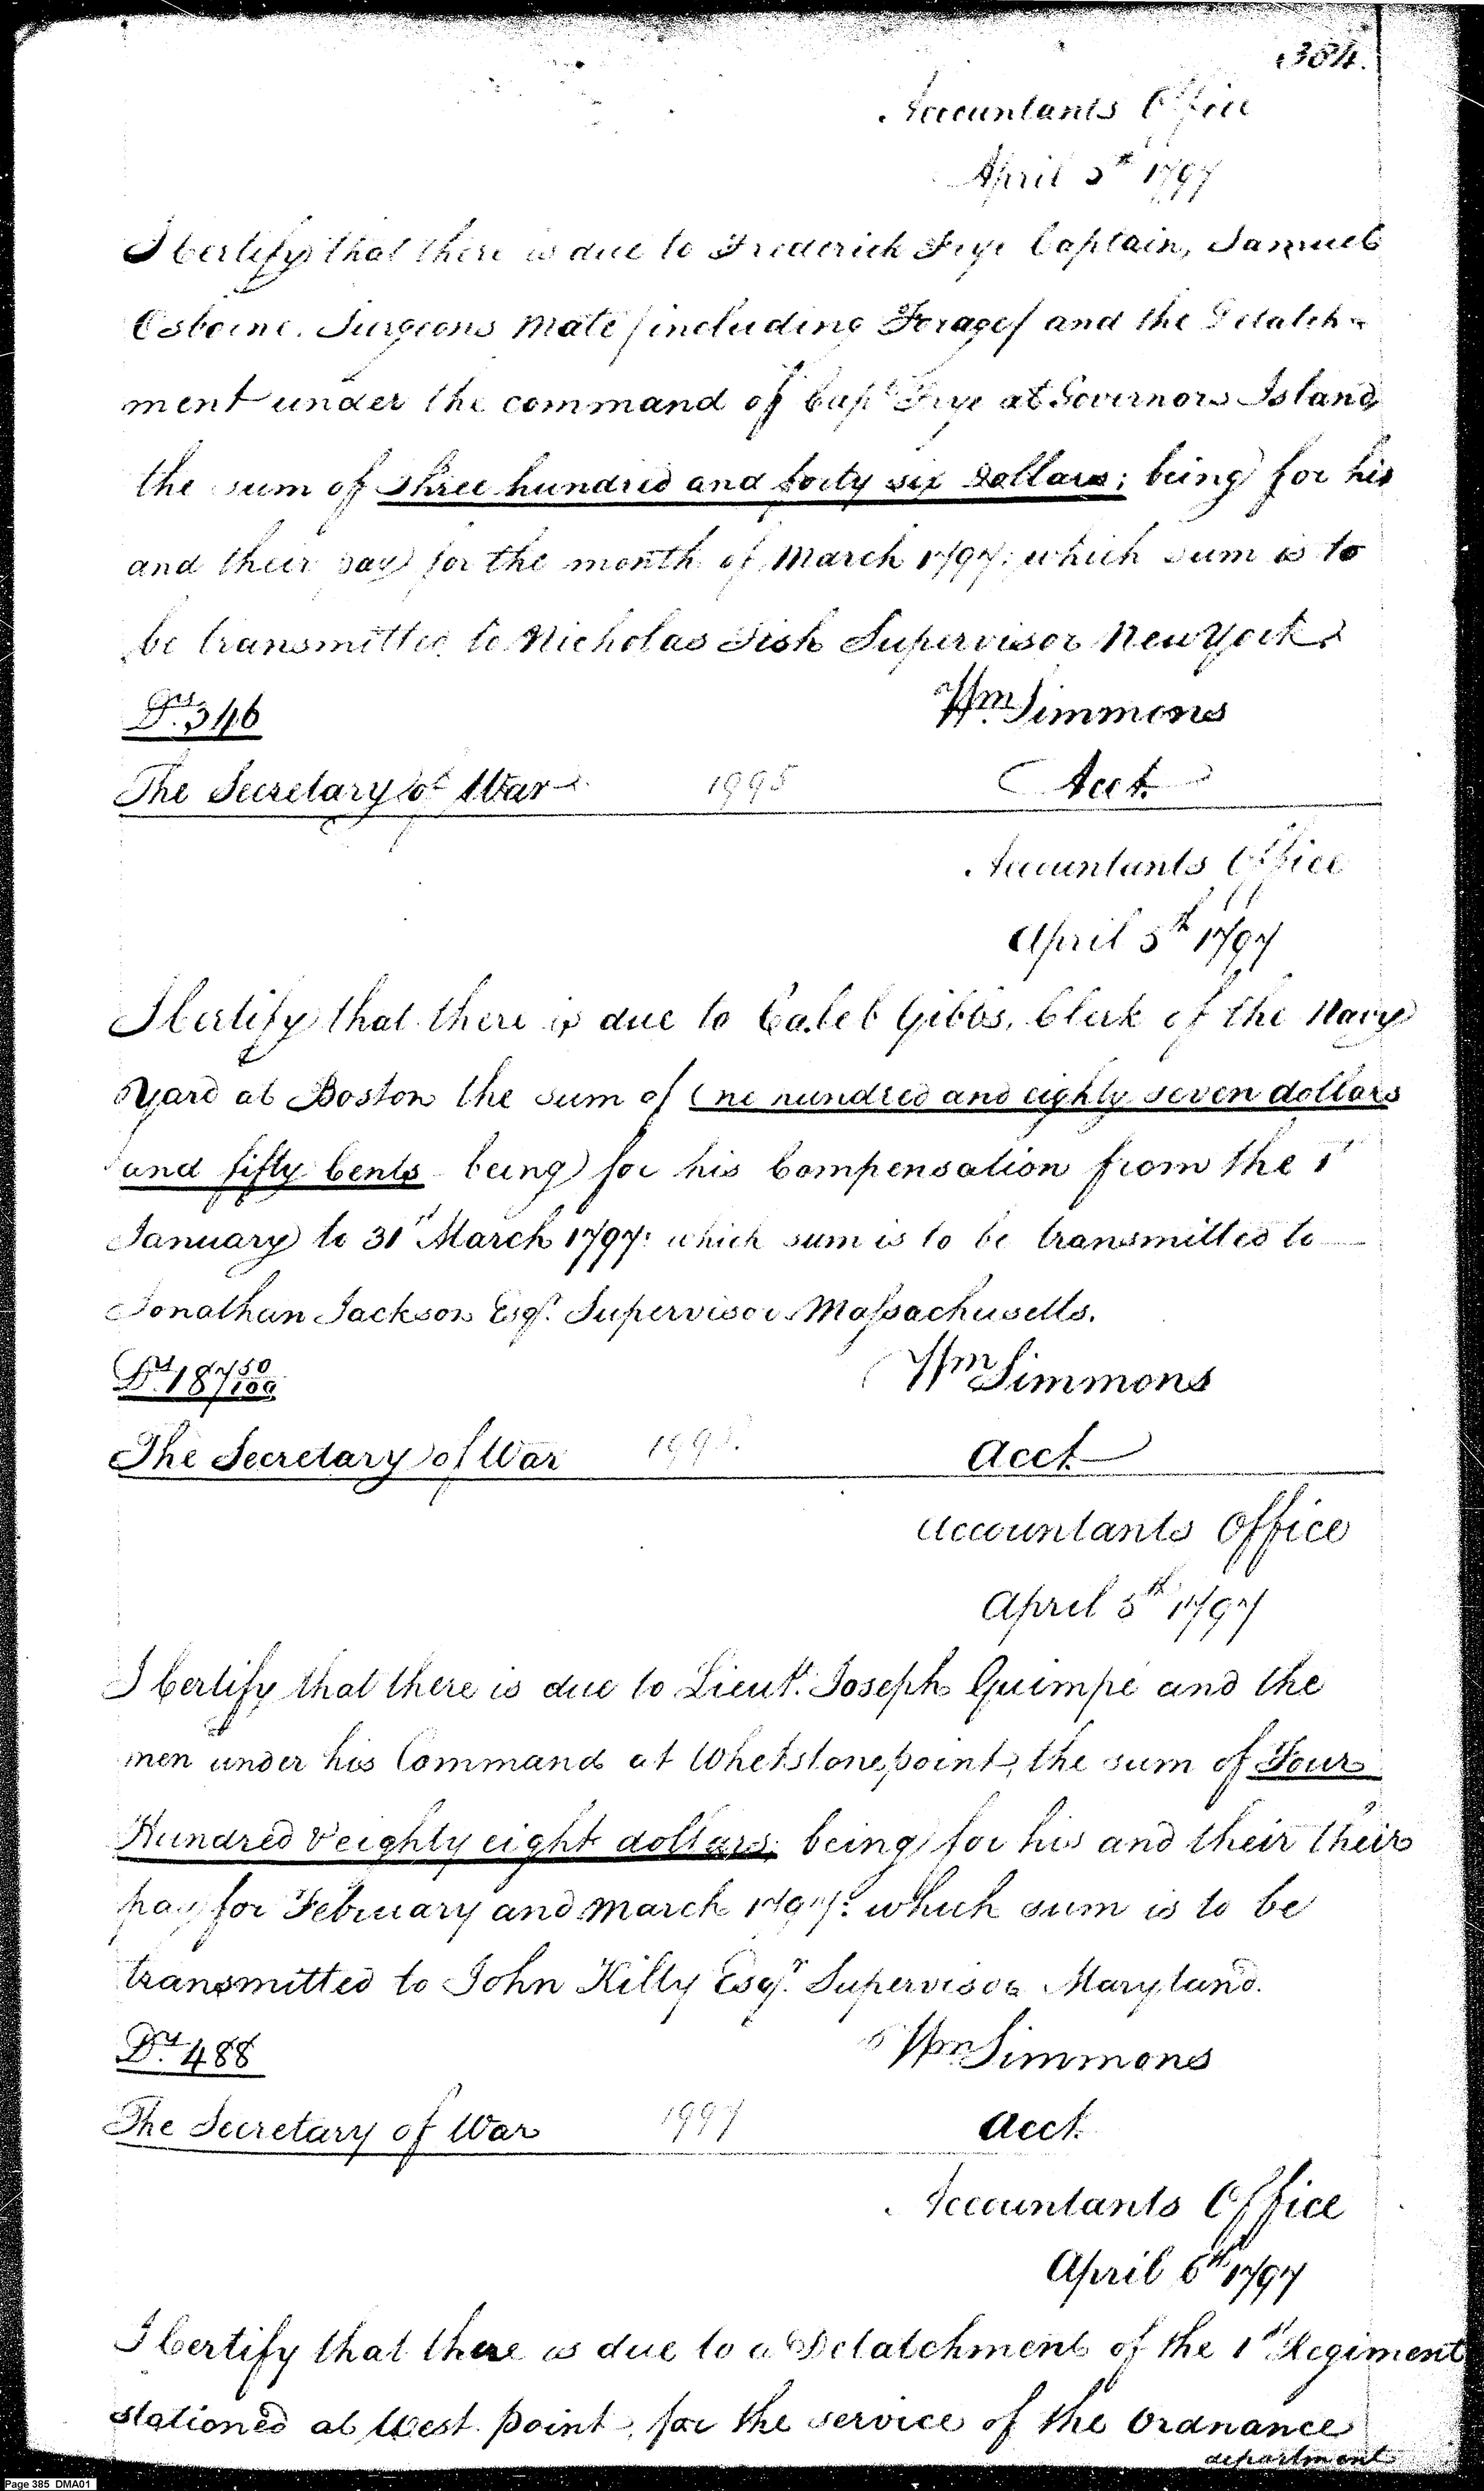 384.
Accountants Office
April 5th 1797
I Certify that there is due to Frederick Frye Captain, Samuel
Osborne. Surgeons Mate/including Forage/ and the Detatch-
ment under the command of Capt Frye at Governors Island
the sum of three hundred and forty six Dollars; being for his
and their pay for the month of March 1797: which sum is to
be transmitted to Nicholas Fish Supervisor New York.
Drs. 346
Wm Simmons
The Secretary of War
1995
Acct.
Accountants Office
April 5th 1797
I Certify that there is due to Caleb Gibbs, Clerk of the Navy
Yard at Boston the sum of One hundred and eighty seven dollars
and fifty Cents being for his Compensation from the 1st
January to 31st March 1797: which sum is to be transmitted to
Jonathan Jackson Esqr. Supervisor Massachusetts.
Drs. 187 50/100
Wm Simmons
The Secretary of War
Acct.
Accountants Office
April 5th 1797
I Certify that there is due to Lieut. Joseph Guimpé and the
men under his Command at Whetstone point, the sum of Four
Hundred & eighty eight dollars; being for his and their their
pay for February and March 1797: which sum is to be
transmitted to John Kilty Esqr. Supervisor Maryland.
Drs. 488
Wm Simmons
The Secretary of War
1997
Acct.
Accountants Office
April 6th 1797
I Certify that there is due to a Detatchment of the 1st Regiment
stationed at West point, for the service of the Ordnance
department
Page 385 DMA01